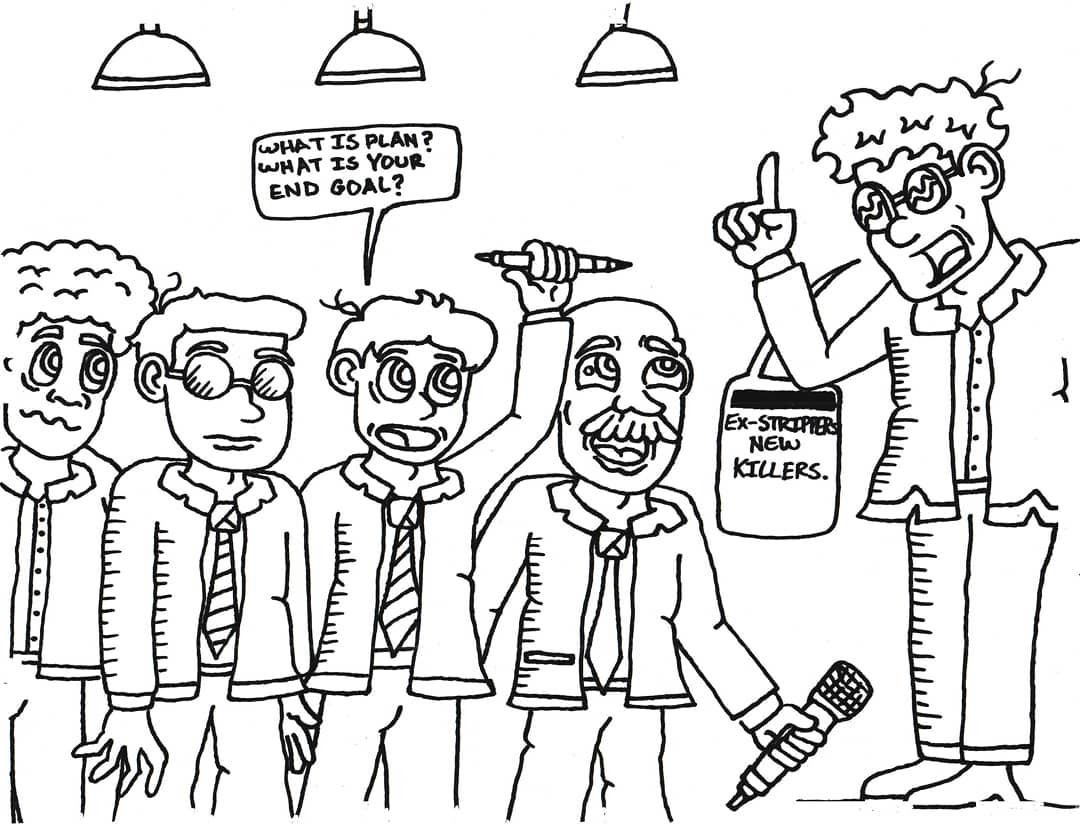 WHAT IS PLAN?
WHAT IS YOUR
END GOAL?
EX-STRIPPERS
NEW
KILLERS.